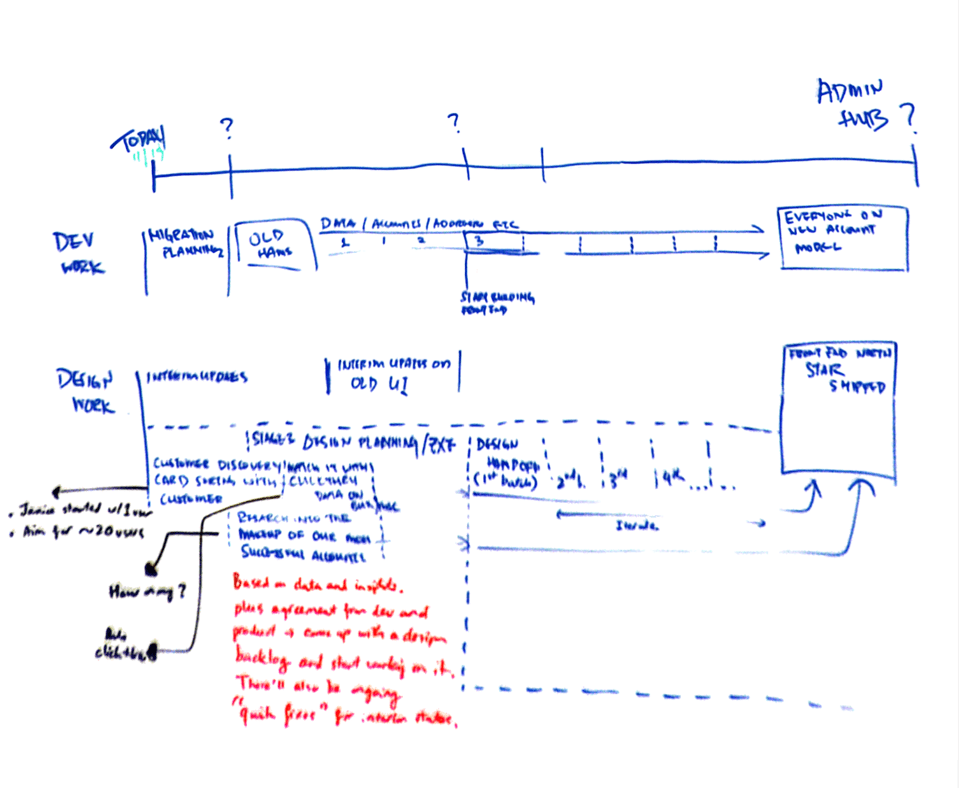 ADMIN
HUB ?
TODAY
11/19
?
?
DEV
WORK
MIGRATION
PLANNING
OLD
HAWS
DATA / ACCOUNTS / ADDRESSES ETC
1
1
2
3
START BUILDING
FRONT END
EVERYONE ON
NEW ACCOUNT
MODEL
DESIGN
WORK
INTERIM UPDATES
INTERIM UPDATES ON
OLD UI
FRONT END NORTH
STAR
SHIPPED
STAGE 2 DESIGN PLANNING/
CUSTOMER DISCOVERY/
CARD SORTING WITH
CUSTOMER
MATCH IT WITH
DATA ON
RESEARCH INTO THE
MAKEUP OF OUR MOST
SUCCESSFUL ACCOUNTS
DESIGN
HANDOFF
(1st batch)
2nd.
3rd
4th ... ..
Iterate.
. Janice started w/1 user
. Aim for ~20 users
How many?
Based on data and insights,
plus agreement from dev and
product → come up with a design
backlog and start working on it.
There'll also be ongoing
"quick fixes" for interim states.